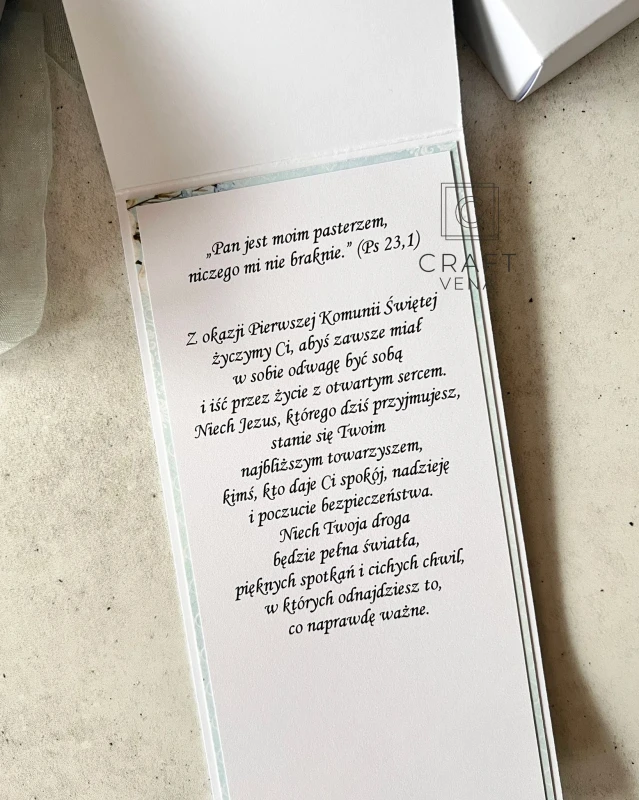 „Pan jest moim pasterzem,
niczego mi nie braknie.” (Ps 23,1)
Z okazji Pierwszej Komunii Świętej
życzymy Ci, abyś zawsze miał
w sobie odwagę być sobą
i iść przez życie z otwartym sercem.
Niech Jezus, którego dziś przyjmujesz,
stanie się Twoim
najbliższym towarzyszem,
kimś, kto daje Ci spokój, nadzieję
i poczucie bezpieczeństwa.
Niech Twoja droga
będzie pełna światła,
pięknych spotkań i cichych chwil,
w których odnajdziesz to,
co naprawdę ważne.
C
CRAFT
VENA